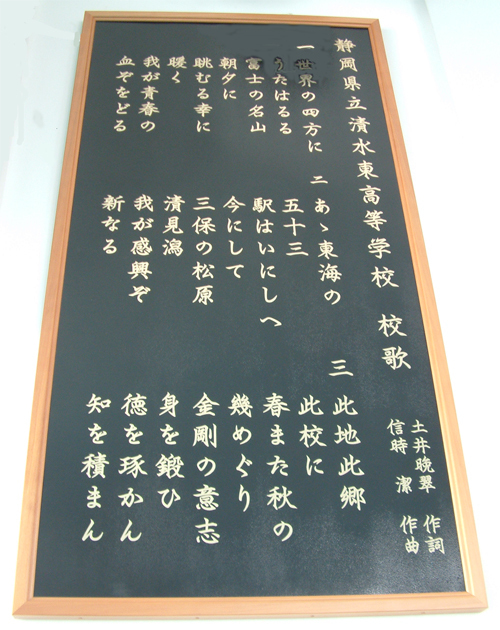 静岡県立清水東高等学校 校歌
土井晩翠 作詞
信時 潔 作曲
一 世界の四方に
うたはるる
富士の名山
朝夕に
眺むる幸に
暖く
我が青春の
血ぞをどる
二 あゝ東海の
五十三
駅はいにしへ
今にして
三保の松原
清見潟
我が感興ぞ
新なる
三 此地此郷
此校に
春また秋の
幾めぐり
金剛の意志
身を鍛ひ
徳を琢かん
知を積まん